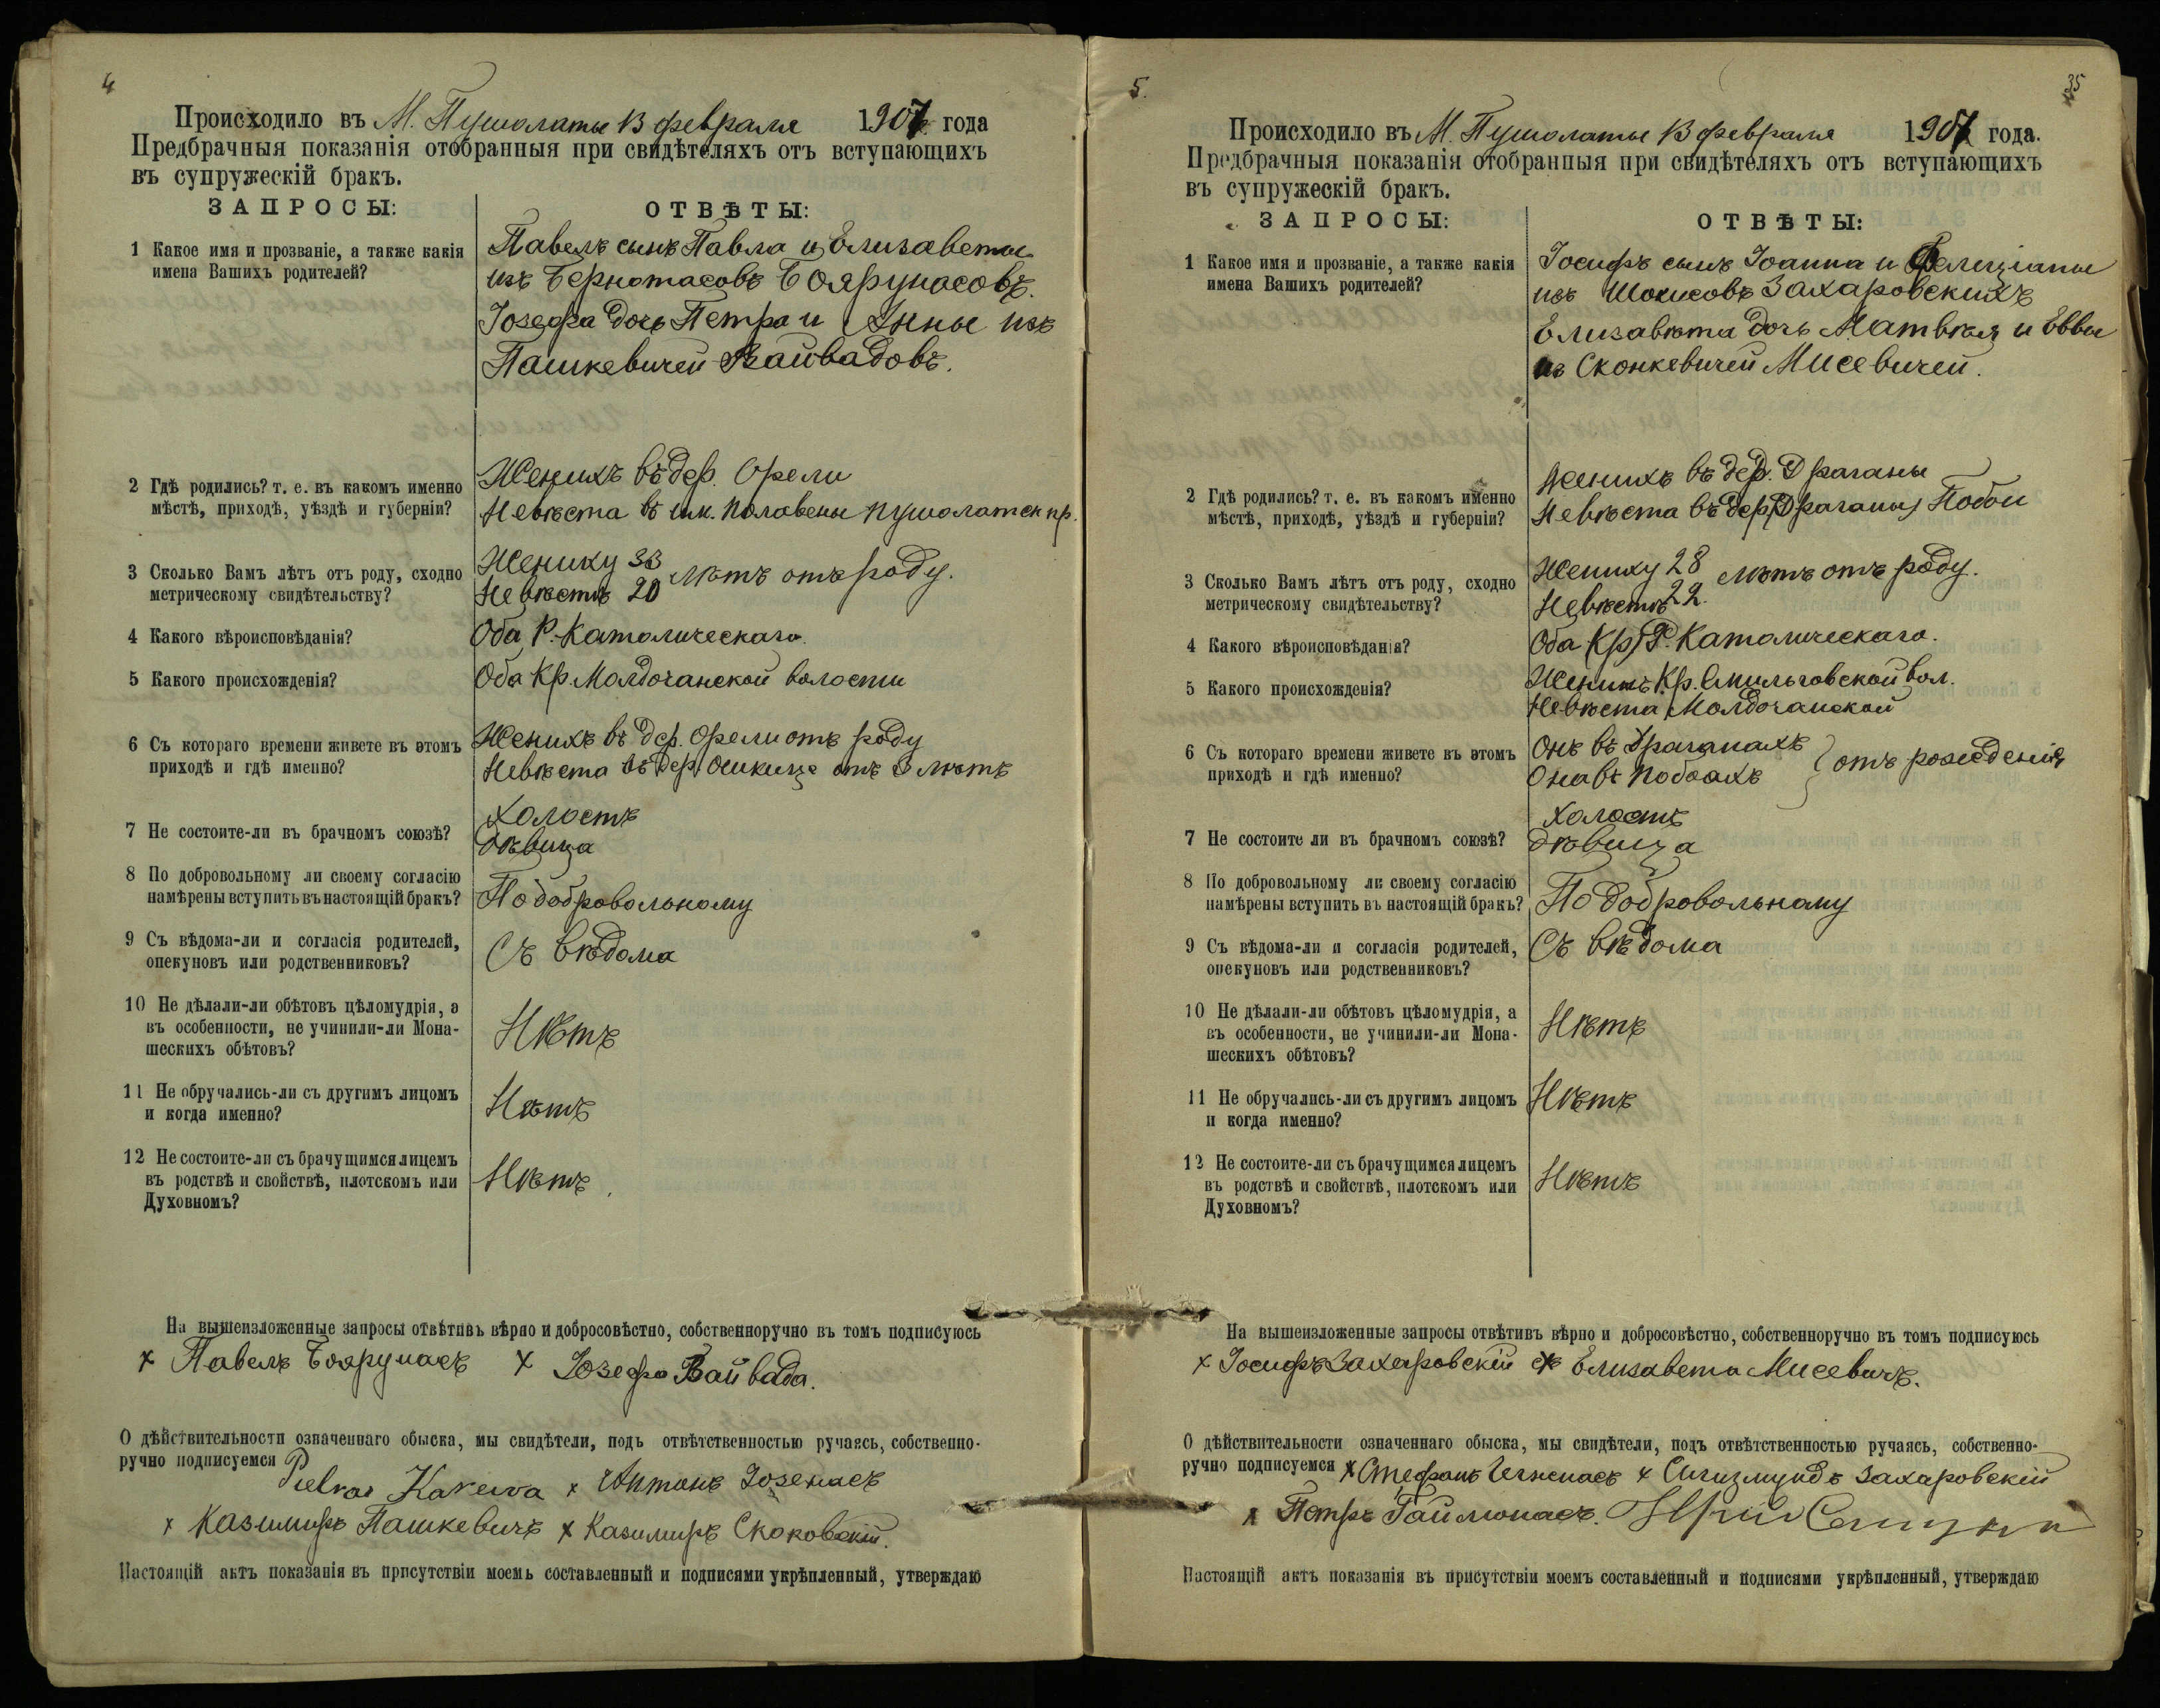 4
Происходило въ М. Пушолаты 13 февраля 1907 года
Предбрачныя показанія отобранныя при свидѣтеляхъ отъ вступающихъ
въ супружескій бракъ.
ЗАПРОСЫ:
ОТВѢТЫ:
1 Какое имя и прозваніе, а также какія
имена Вашихъ родителей?
Павелъ сынъ Павла и Елизаветы
изъ Бернотасовъ Бояруносовъ.
Іозефа дочь Петра и Анны изъ
Пашкевичей Вайвадовъ.
2 Гдѣ родились? т. е. въ какомъ именно
мѣстѣ, приходѣ, уѣздѣ и губерніи?
Женихъ въ дер. Орели
Невѣста въ им. Полавены пушолатск пр.
3 Сколько Вамъ лѣтъ отъ роду, сходно
метрическому свидѣтельству?
Жениху 33
Невѣстѣ 20 лѣтъ отъ роду.
4 Какого вѣроисповѣданія?
Оба Р. Католическаго.
5 Какого происхожденія?
Оба Кр. Молдочанской волости
6 Съ котораго времени живете въ этомъ
приходѣ и гдѣ именно?
Женихъ въ дер. Орели отъ роду
Невѣста въ дер. отъ 3 лѣтъ
7 Не состоите-ли въ брачномъ союзѣ?
Холостъ
дѣвица
8 По добровольному ли своему согласію
намѣрены вступить въ настоящій бракъ?
По добровольному
9 Съ вѣдома-ли и согласія родителей,
опекуновъ или родственниковъ?
Съ вѣдома
10 Не дѣлали-ли обѣтовъ цѣломудрія, а
въ особенности, не учинили-ли Мона-
шескихъ обѣтовъ?
Нѣтъ
11 Не обручались-ли съ другимъ лицомъ
и когда именно?
Нѣтъ
12 Не состоите-ли съ брачущимся лицемъ
въ родствѣ и свойствѣ, плотскомъ или
Духовномъ?
Нѣтъ.
На вышеизложенные запросы отвѣтивъ вѣрно и добросовѣстно, собственноручно въ томъ подписуюсь
x Павелъ Боярунасъ x Іозефа Вайвада.
О дѣйствительности означеннаго обыска, мы свидѣтели, подъ отвѣтственностью ручаясь, собственно-
ручно подписуемся
x Антонъ Іозенасъ
x Казимиръ Пашкевичъ x Казимиръ Скоковскій.
Настоящій актъ показанія въ присутствіи моемь составленный и подписями укрѣпленный, утверждаю
5.
35
Происходило въ М. Пушолаты 13 февраля 1907 года.
Предбрачныя показанія отобранныя при свидѣтеляхъ отъ вступающихъ
въ супружескій бракъ.
ЗАПРОСЫ:
ОТВѢТЫ:
1 Какое имя и прозваніе, а также какія
имена Вашихъ родителей?
Іосифъ сынъ Іоанна и Фелиціаны
изъ Шокисовъ Захаровскихъ
Елизавѣта дочь Матвѣя и Еввы
изъ Сконкевичей Мисевичей.
2 Гдѣ родились? т. е. въ какомъ именно
мѣстѣ, приходѣ, уѣздѣ и губерніи?
Женихъ въ дер. Драганы
Невѣста въ дер (Драганы) Побои
3 Сколько Вамъ лѣтъ отъ роду, сходно
метрическому свидѣтельству?
Жениху 28
Невѣстѣ 22. лѣтъ отъ роду.
4 Какого вѣроисповѣданія?
Оба (Кр) Р. Католическаго.
5 Какого происхожденія?
Женихъ Кр. Смильговской вол.
Невѣста Молдочанской
6 Съ котораго времени живете въ этомъ
приходѣ и гдѣ именно?
Онъ въ Драганахъ
Она въ Побоахъ } отъ рожденія
7 Не состоите ли въ брачномъ союзѣ?
Холостъ
дѣвица
8 По добровольному ли своему согласію
намѣрены вступить въ настоящій бракъ?
По добровольному
9 Съ вѣдома-ли и согласія родителей,
опекуновъ или родственниковъ?
Съ вѣдома
10 Не дѣлали-ли обѣтовъ цѣломудрія, а
въ особенности, не учинили-ли Мона-
шескихъ обѣтовъ?
Нѣтъ
11 Не обручались-ли съ другимъ лицомъ
и когда именно?
Нѣтъ
12 Не состоите-ли съ брачущимся лицемъ
въ родствѣ и свойствѣ, плотскомъ или
Духовномъ?
Нѣтъ
На вышеизложенные запросы отвѣтивъ вѣрно и добросовѣстно, собственноручно въ томъ подписуюсь
x Іосифъ Захаровскій x Елизавета Мисевичъ.
О дѣйствительности означеннаго обыска, мы свидѣтели, подъ отвѣтственностью ручаясь, собственно-
ручно подписуемся x Стефанъ x Сигизмундъ Захаровскій
x Петръ Гаймонасъ.
Настоящій актъ показанія въ присутствіи моемъ составленный и подписями укрѣпленный, утверждаю